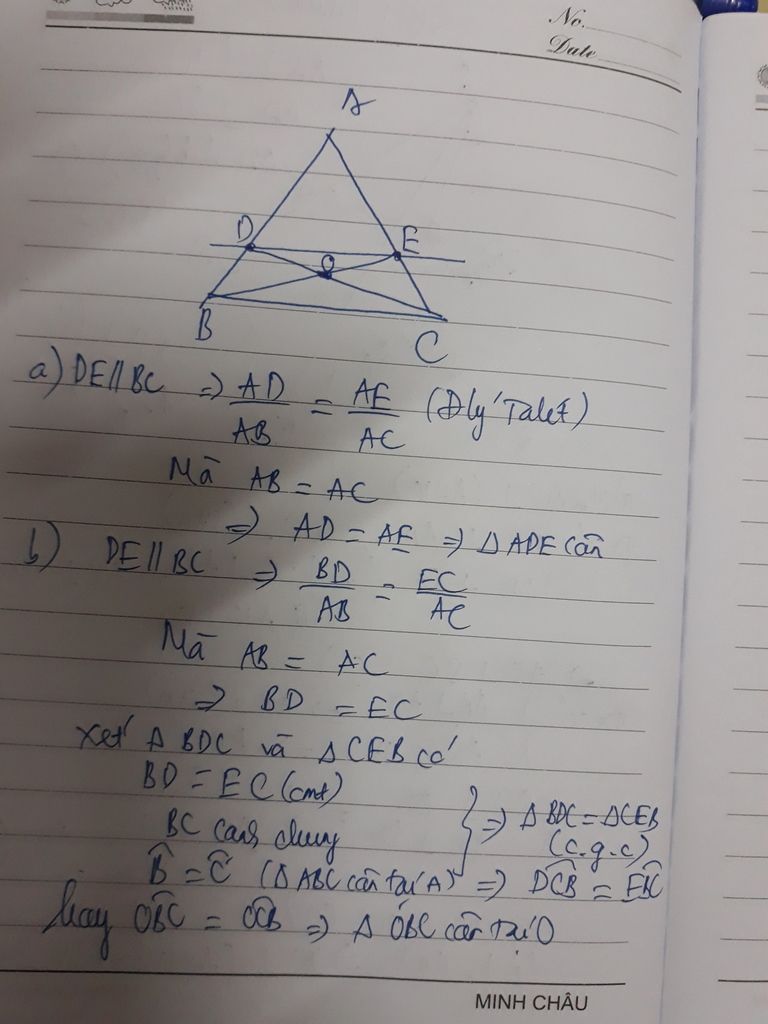 No.
Date
A
D
E
O
B
C
a) DE//BC => AD/AB = AE/AC (Đlý Talet)
Mà AB = AC
=> AD = AE => Δ ADE cân
b) DE//BC => BD/AB = EC/AC
Mà AB = AC
=> BD = EC
Xét Δ BDC và Δ CEB có
BD = EC (cmt)
BC cạnh chung
B̂ = Ĉ (Δ ABC cân tại A)
} => Δ BDC = Δ CEB
(c.g.c)
=> DĈB = EB̂C
hay OB̂C = OĈB => Δ OBC cân tại O
MINH CHÂU